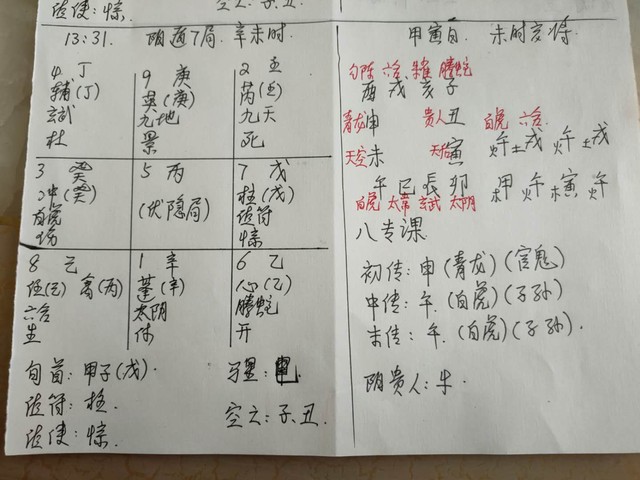 值使:惊.
空亡:子、丑
13:31. 阴遁7局. 辛未时
4 丁
辅(丁)
玄武
杜
9 庚
英(庚)
九地
景
2 壬
芮(壬)
九天
死
3 癸
冲(癸)
白虎
伤
5 丙
(伏隐局)
7 戊
柱(戊)
值符
惊
8 己
任(己) 禽(丙)
六合
生
1 辛
蓬(辛)
太阴
休
6 乙
心(乙)
腾蛇
开
旬首:甲子(戊).
值符:柱.
值使:惊.
马星:申
空亡:子、丑.
甲寅日. 未时亥将.
勾陈 六合 朱雀 腾蛇
酉 戌 亥 子
青龙申 贵人丑 白虎 六合
天空未 天后寅 火午 土戌 火午 土戌
午 巳 辰 卯 木甲 火午 木寅 火午
白虎 太常 玄武 太阴
八专课
初传:申(青龙)(官鬼)
中传:午.(白虎)(子孙)
末传:午.(白虎)(子孙).
阴贵人:牛.